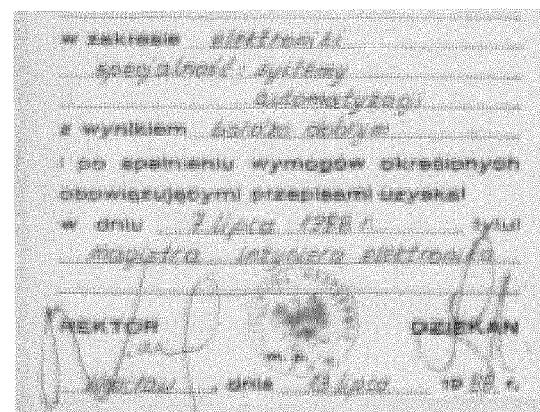 w zakresie elektroniki
specjalność: systemy
automatyzacji
z wynikiem bardzo dobrym
i po spełnieniu wymogów określonych
obowiązującymi przepisami uzyskał
w dniu 7 lipca 1988 r. tytuł
magistra inżyniera elektronika
REKTOR DZIEKAN
m. p.
dnia 13 lipca 19 88 r.